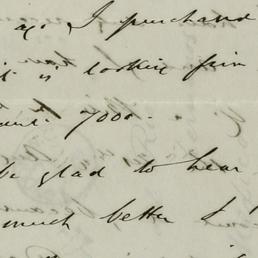 ago I purchased
it is looking fine
7000.
be glad to hear
much better &